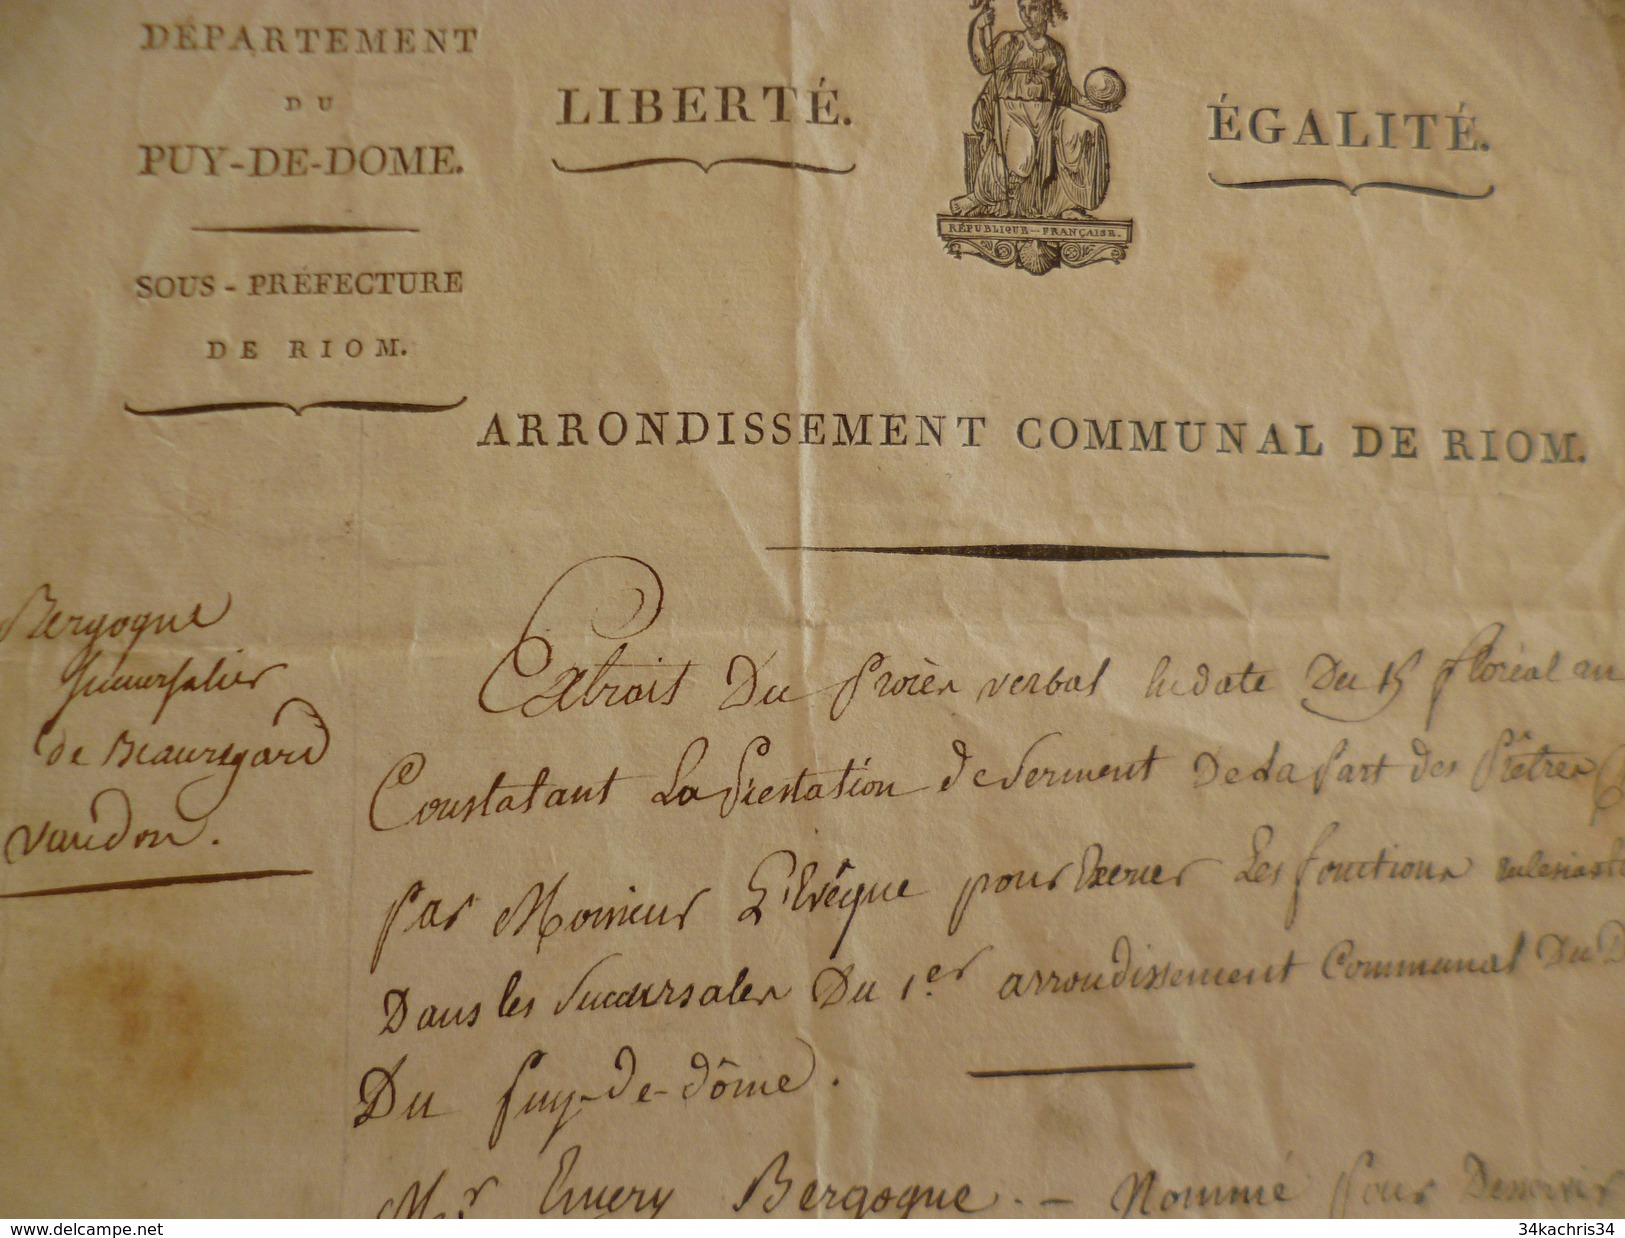 DÉPARTEMENT
DU
PUY-DE-DOME.
SOUS-PRÉFECTURE
DE RIOM.
LIBERTÉ.
RÉPUBLIQUE-FRANÇAISE.
ÉGALITÉ.
ARRONDISSEMENT COMMUNAL DE RIOM.
Bergogne
succursalier
de Beauregard
Vandon.
Extrait Du Procès verbal en date Du 15 floréal an
Constatant La Prestation de Serment De La Part des Prêtres
par Monsieur L'Evêque pour Exercer Les fonctions
Dans les Succursales Du 1er arrondissement Communal Du
Du Puy-de-dôme.
Mr Emery Bergogne. - Nommé pour Desservir
delcampe.net
34kachris34